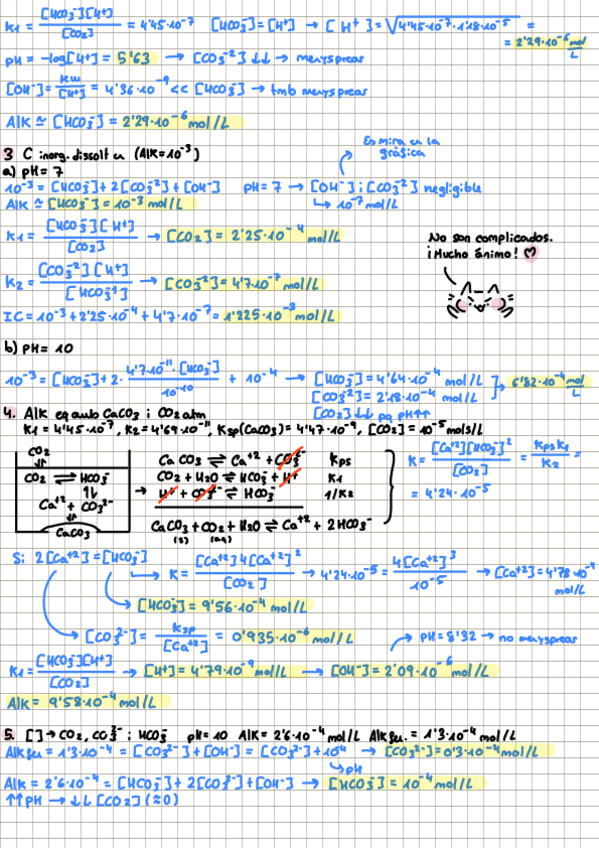 K1 = [HCO3-][H+] / [CO2] = 4'45·10^-7   [HCO3-] = [H+] → [H+] = √4'45·10^-7·1'18·10^-5 =
= 2'29·10^-6 mol/L
pH = -log[H+] = 5'63 → [CO3^-2] ↓↓ → menysprear
[OH-] = Kw / [H+] = 4'36·10^-9 << [HCO3-] → tmb menysprear
Alk ≃ [HCO3-] = 2'29·10^-6 mol/L
3 C inorg. dissolt en (Alk=10^-3)
Es mira en la
gràfica
a) pH = 7
10^-3 = [HCO3-] + 2[CO3^-2] + [OH-]   pH = 7 → [OH-] i [CO3^-2] negligible
Alk ≃ [HCO3-] = 10^-3 mol/L   ↳ 10^-7 mol/L
K1 = [HCO3-][H+] / [CO2] → [CO2] = 2'25·10^-4 mol/L
No son complicados.
¡Mucho ánimo! ♡
K2 = [CO3^-2][H+] / [HCO3^-1] → [CO3^-2] = 4'7·10^-7 mol/L
IC = 10^-3 + 2'25·10^-4 + 4'7·10^-7 = 1'225·10^-3 mol/L
b) pH = 10
10^-3 = [HCO3-] + 2· 4'7·10^-11·[HCO3-] / 10^-10 + 10^-4 → [HCO3-] = 4'64·10^-4 mol/L
[CO3^2-] = 2'18·10^-4 mol/L → 6'82·10^-4 mol/L
[CO2] ↓↓ pq pH↑↑
4. Alk eq amb CaCO3 i CO2 atm
K1 = 4'45·10^-7, K2 = 4'69·10^-11, Ksp(CaCO3) = 4'47·10^-9, [CO2] = 10^-5 mols/L
CO2
CO2 ⇌ HCO3-
Ca^+2 + CO3^2-
CaCO3
CaCO3 ⇌ Ca^+2 + CO3^2-   Kps
CO2 + H2O ⇌ HCO3- + H+   K1
H+ + CO3^2- ⇌ HCO3-   1/K2
CaCO3 + CO2 + H2O ⇌ Ca^+2 + 2HCO3-
(s)   (aq)
K = [Ca^+2][HCO3-]^2 / [CO2] = Kps K1 / K2 =
= 4'24·10^-5
Si 2[Ca^+2] = [HCO3-]
K = [Ca^+2]4[Ca^+2]^2 / [CO2] → 4'24·10^-5 = 4[Ca^+2]^3 / 10^-5 → [Ca^+2] = 4'78·10^-4 mol/L
→ [HCO3-] = 9'56·10^-4 mol/L
→ [CO3^2-] = Ksp / [Ca^+2] = 0'935·10^-6 mol/L
→ pH = 8'32 → no menysprear
K1 = [HCO3-][H+] / [CO2] → [H+] = 4'79·10^-9 mol/L → [OH-] = 2'09·10^-6 mol/L
Alk = 9'58·10^-4 mol/L
5. [] → CO2, CO3^2- i HCO3-   pH = 10   Alk = 2'6·10^-4 mol/L   Alk fu. = 1'3·10^-4 mol/L
Alk fu = 1'3·10^-4 = [CO3^2-] + [OH-] = [CO3^2-] + 10^-4 → [CO3^2-] = 0'3·10^-4 mol/L
↳ pH
Alk = 2'6·10^-4 = [HCO3-] + 2[CO3^2-] + [OH-] → [HCO3-] = 10^-4 mol/L
↑↑ pH → ↓↓ [CO2] (≈0)